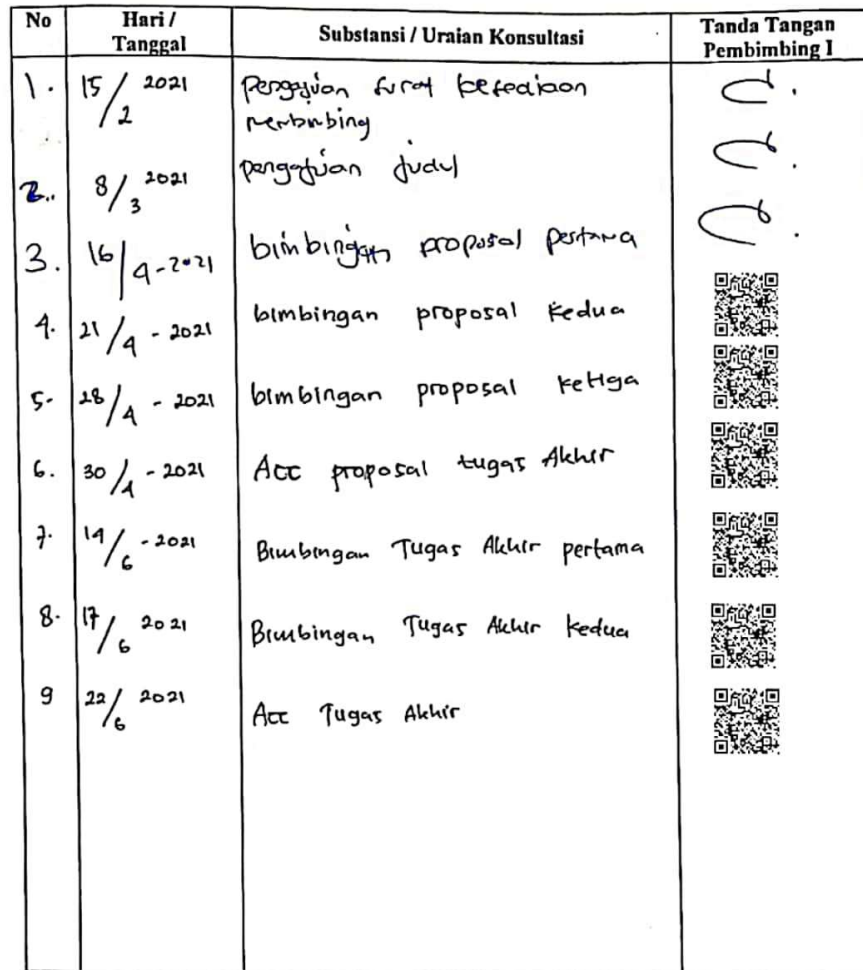 No Hari / Tanggal Substansi / Uraian Konsultasi Tanda Tangan Pembimbing I
1. 15/2 2021 Pengajuan surat kesediaan
membimbing
2. 8/3 2021 pengajuan judul
3. 16/4-2021 bimbingan proposal pertama
4. 21/4 - 2021 bimbingan proposal kedua
5. 28/4 - 2021 bimbingan proposal ketiga
6. 30/4 - 2021 Acc proposal tugas Akhir
7. 14/6 - 2021 Bimbingan Tugas Akhir pertama
8. 17/6 2021 Bimbingan Tugas Akhir kedua
9 22/6 2021 Acc Tugas Akhir